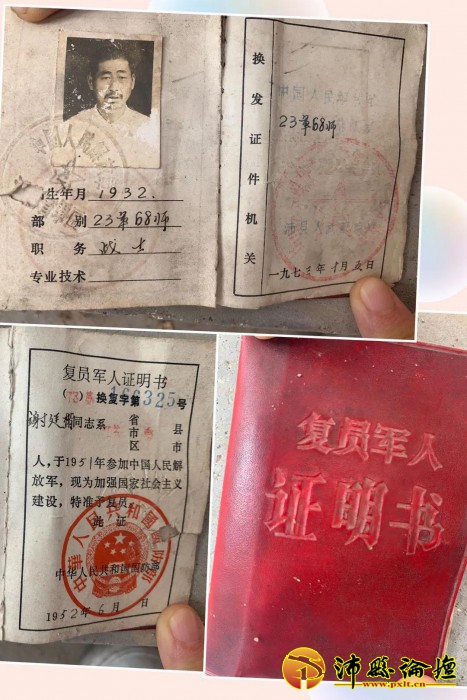 生年月 1932.
部别 23军68师
职务 战士
专业技术
换发证件机关
23军68师
一九七三年 月 日
复员军人证明书
换复字第 号
同志系 省 县
市
区 市
人，于1951年参加中国人民解
放军，现为加强国家社会主义
建设，特准予复员
此证
中华人民共和国国防部
1952年6月 日
复员军人
证明书
沛县论坛
www.pxlt.cn